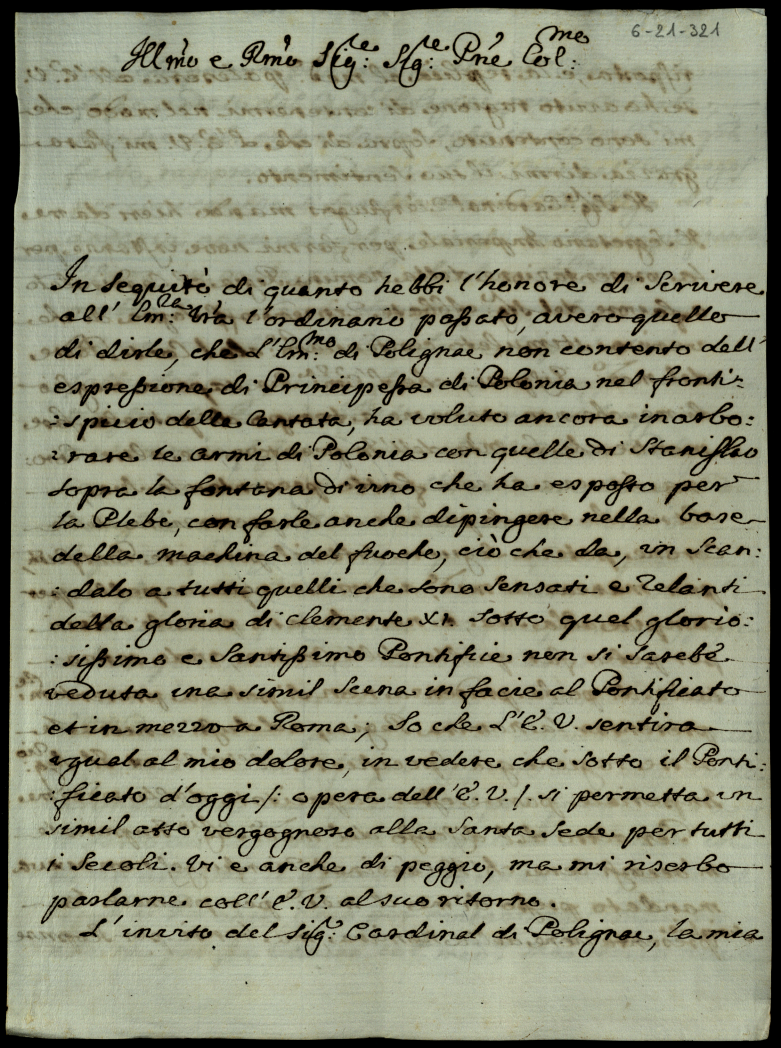 6-21-321
Ill.mo e R.mo Sig.re Sig.re P.ne Col.mo
In sequito di quanto hebbi l'honore di Scrivere
all' Em.za V.ra l'ordinario passato, avero quello
di dirle, che L'Em.mo di Polignac non contento dell'
espressione di Principessa di Polonia nel fronti=
:spicio della Cantata, ha voluto ancora inarbo:
:rare le armi di Polonia con quelle di Stanislao
sopra la fontana di vino che ha esposto per
la Plebe, con farle anche dipingere nella base
della machina del fuocho, ciò che da, un scan:
:dalo a tutti quelli che sono sensati e Zelanti
della gloria di Clemente XI. sotto quel glorio:
:sissimo e Santissimo Pontifice non si sarebe
veduta una simil Scena in facie al Pontificato
et in mezzo a Roma; So che L'E. V. sentira
ugual al mio dolore, in vedere che sotto il Ponti:
:ficato d'oggi /: opera dell' E. V. /. si permetta un
simil atto vergognoso alla Santa Sede per tutti
i Secoli. Vi e anche di peggio, ma mi riserbo
parlarne coll' E. V. al suo ritorno.
L'invito del Sig.r Cardinal di Polignac, la mia